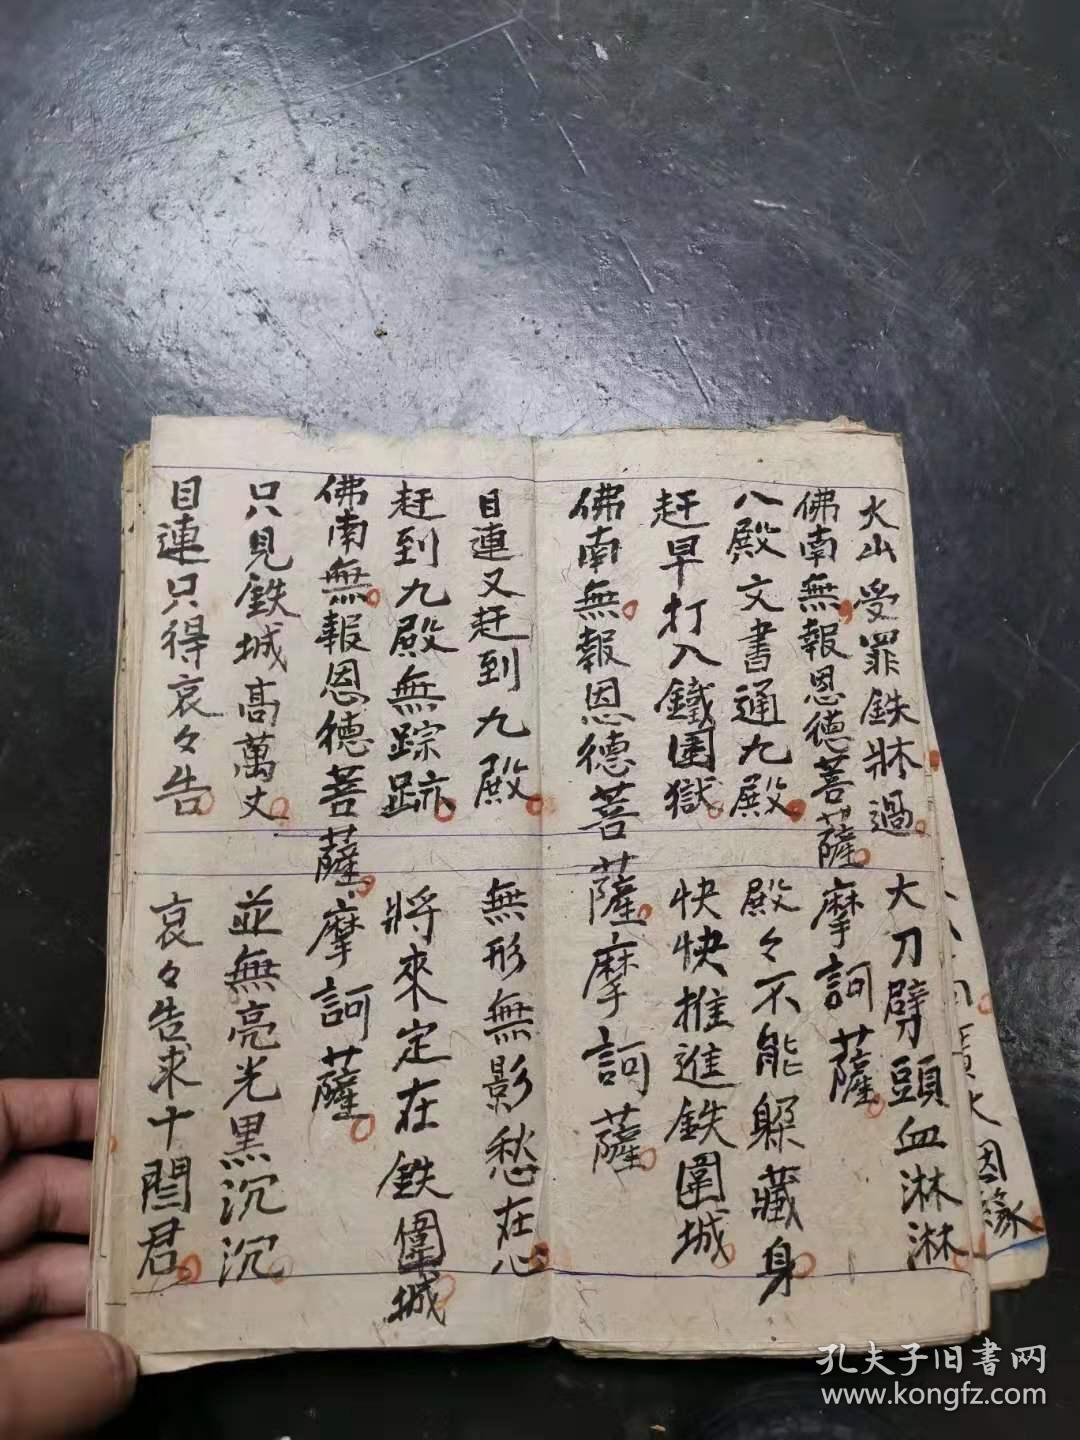 火山受罪鉄牀過 大刀劈頭血淋淋
佛南無報恩德菩薩 摩訶薩
八殿文書通九殿 殿々不能躱藏身
赶早打入鐵圍獄 快快推進鉄圍城
佛南無報恩德菩薩摩訶薩
目連又赶到九殿 無形無影愁在心
赶到九殿無踪跡 將來定在鉄圍城
佛南無報恩德菩薩摩訶薩
只見鉄城高萬丈 並無亮光黑沉沉
目連只得哀々告 哀々告求十閻君
因緣
孔夫子旧書网
www.kongfz.com